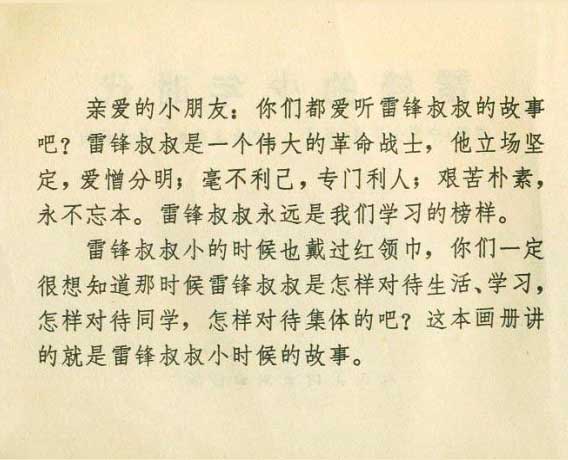 亲爱的小朋友：你们都爱听雷锋叔叔的故事
吧？雷锋叔叔是一个伟大的革命战士，他立场坚
定，爱憎分明；毫不利己，专门利人；艰苦朴素，
永不忘本。雷锋叔叔永远是我们学习的榜样。
雷锋叔叔小的时候也戴过红领巾，你们一定
很想知道那时候雷锋叔叔是怎样对待生活、学习，
怎样对待同学，怎样对待集体的吧？这本画册讲
的就是雷锋叔叔小时候的故事。